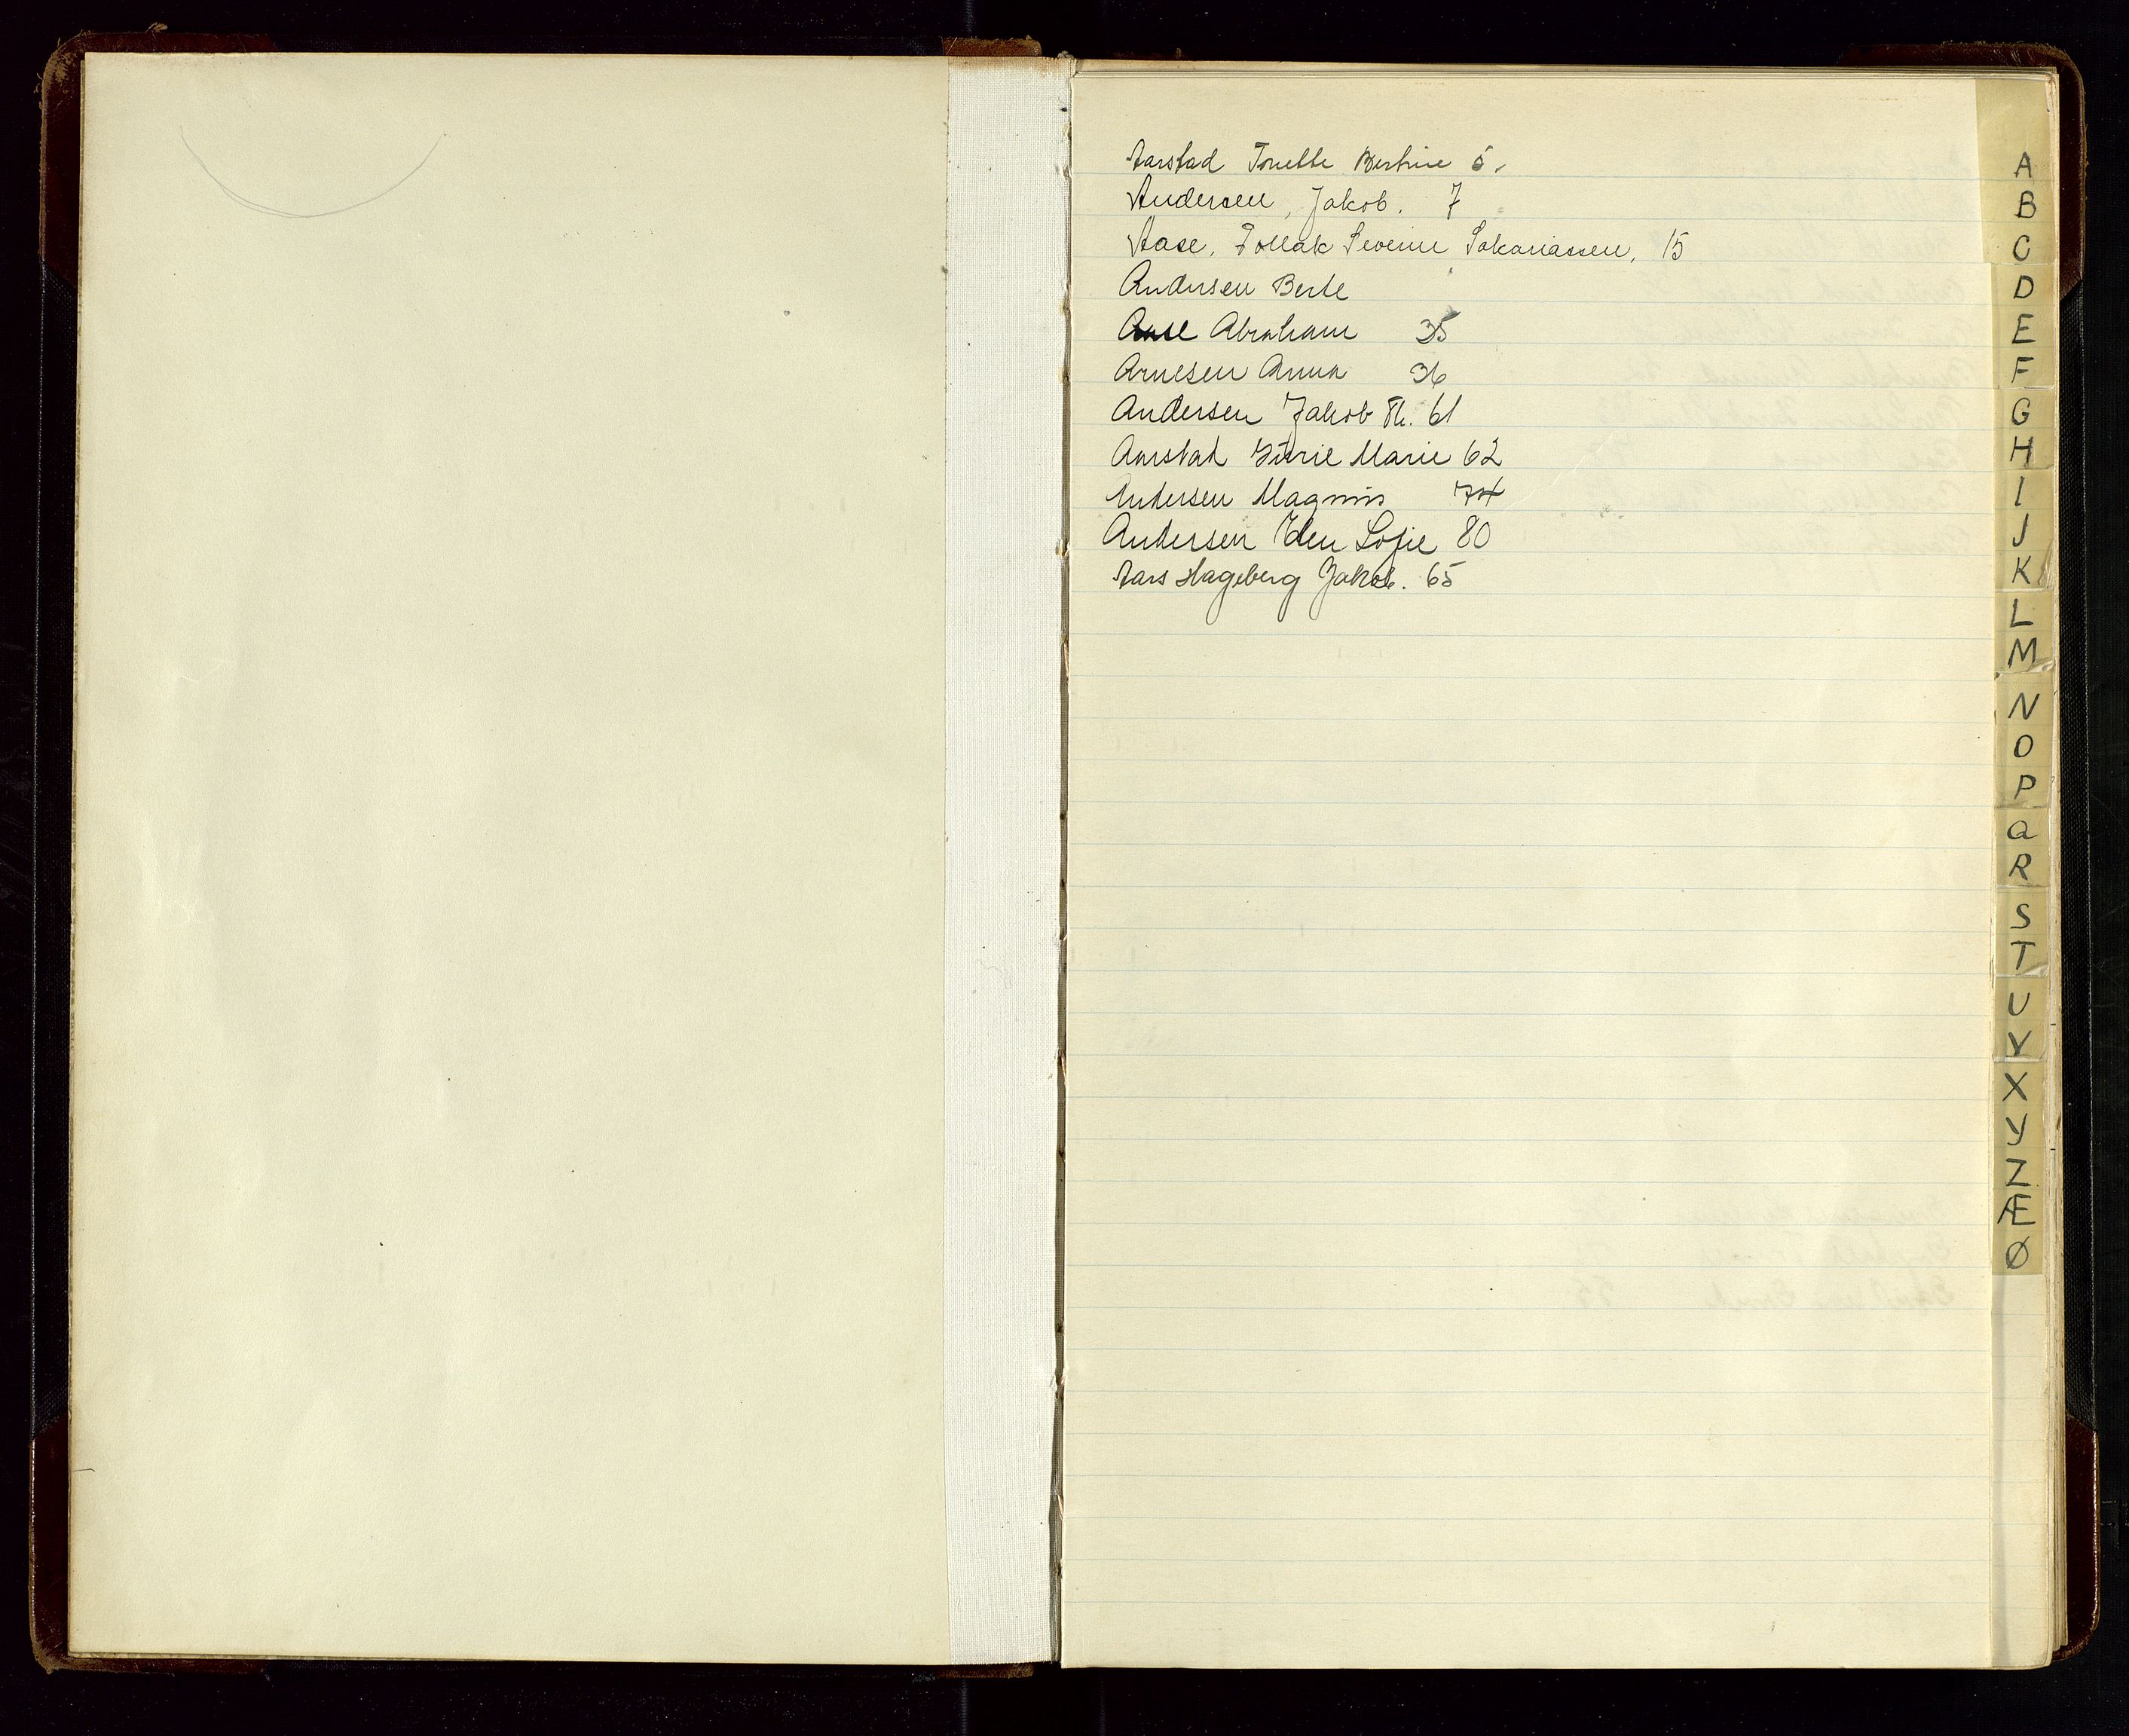 Aarstad Tonette Bertine 5.
Andersen, Jakob. 7
Aase, Tollak Severin Sakariassen, 15
Andersen Berte
Aase Abraham 35
Arnesen Anna 36
Andersen Jakob Th. 61
Aarstad Marie 62
Andersen Magnus 74
Andersen Elen Sofie 80
Aars Hageberg Jakob. 65
A
B
C
D
E
F
G
H
I
J
K
L
M
N
O
P
Q
R
S
T
U
V
X
Y
Z
Æ
Ø